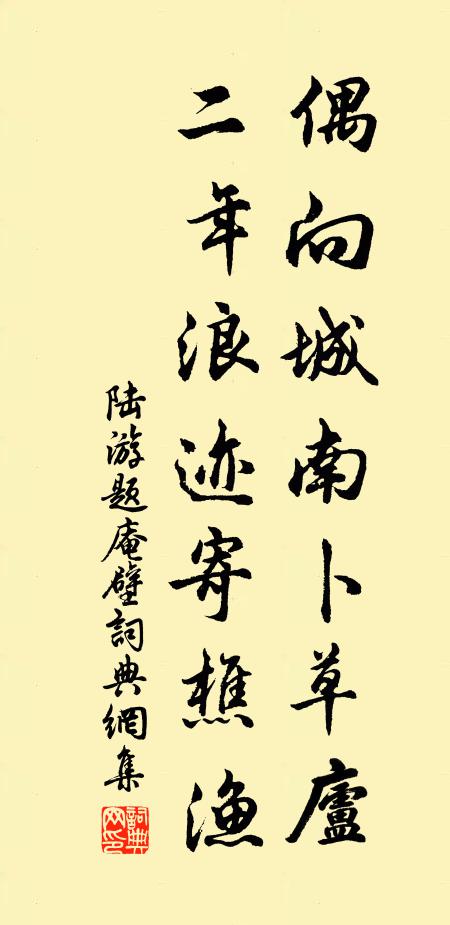 偶向城南卜草廬
二年浪迹寄樵渔
陆游题庵壁詞典網集
詞典网印